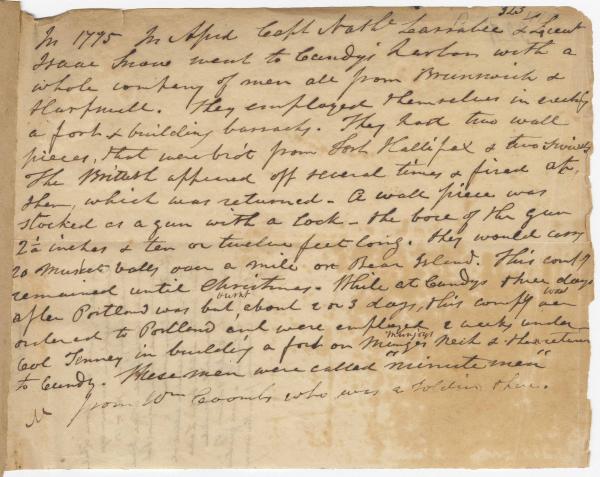 323
In 1775 In April Capt Nathl Larrabee & Lieut
Isaac Snow went to Cundy's harbor with a
whole company of men all from Brunswick &
Harpswell. They employed themselves in erecting
a fort & building barracks. They had two wall
pieces, that were bro't from Fort Hallifax & two swivels
The British appeared off several times & fired at
them, which was returned - A wall piece was
stocked as a gun with a lock - the bore of the gun
2 inches & ten or twelve feet long. they would carry
20 musket balls over a mile on Bear Island. This compy
remained until Christmas. While at Cundys three days
after Portland was burnt but about 2 or 3 days, this compy was
ordered to Portland and were employed 2 weeks under
Col Tenney in building a fort on Munjoys Neck & then return
to Cundy. These men were called "minute men"
from Wm Coombs who was a soldier there.